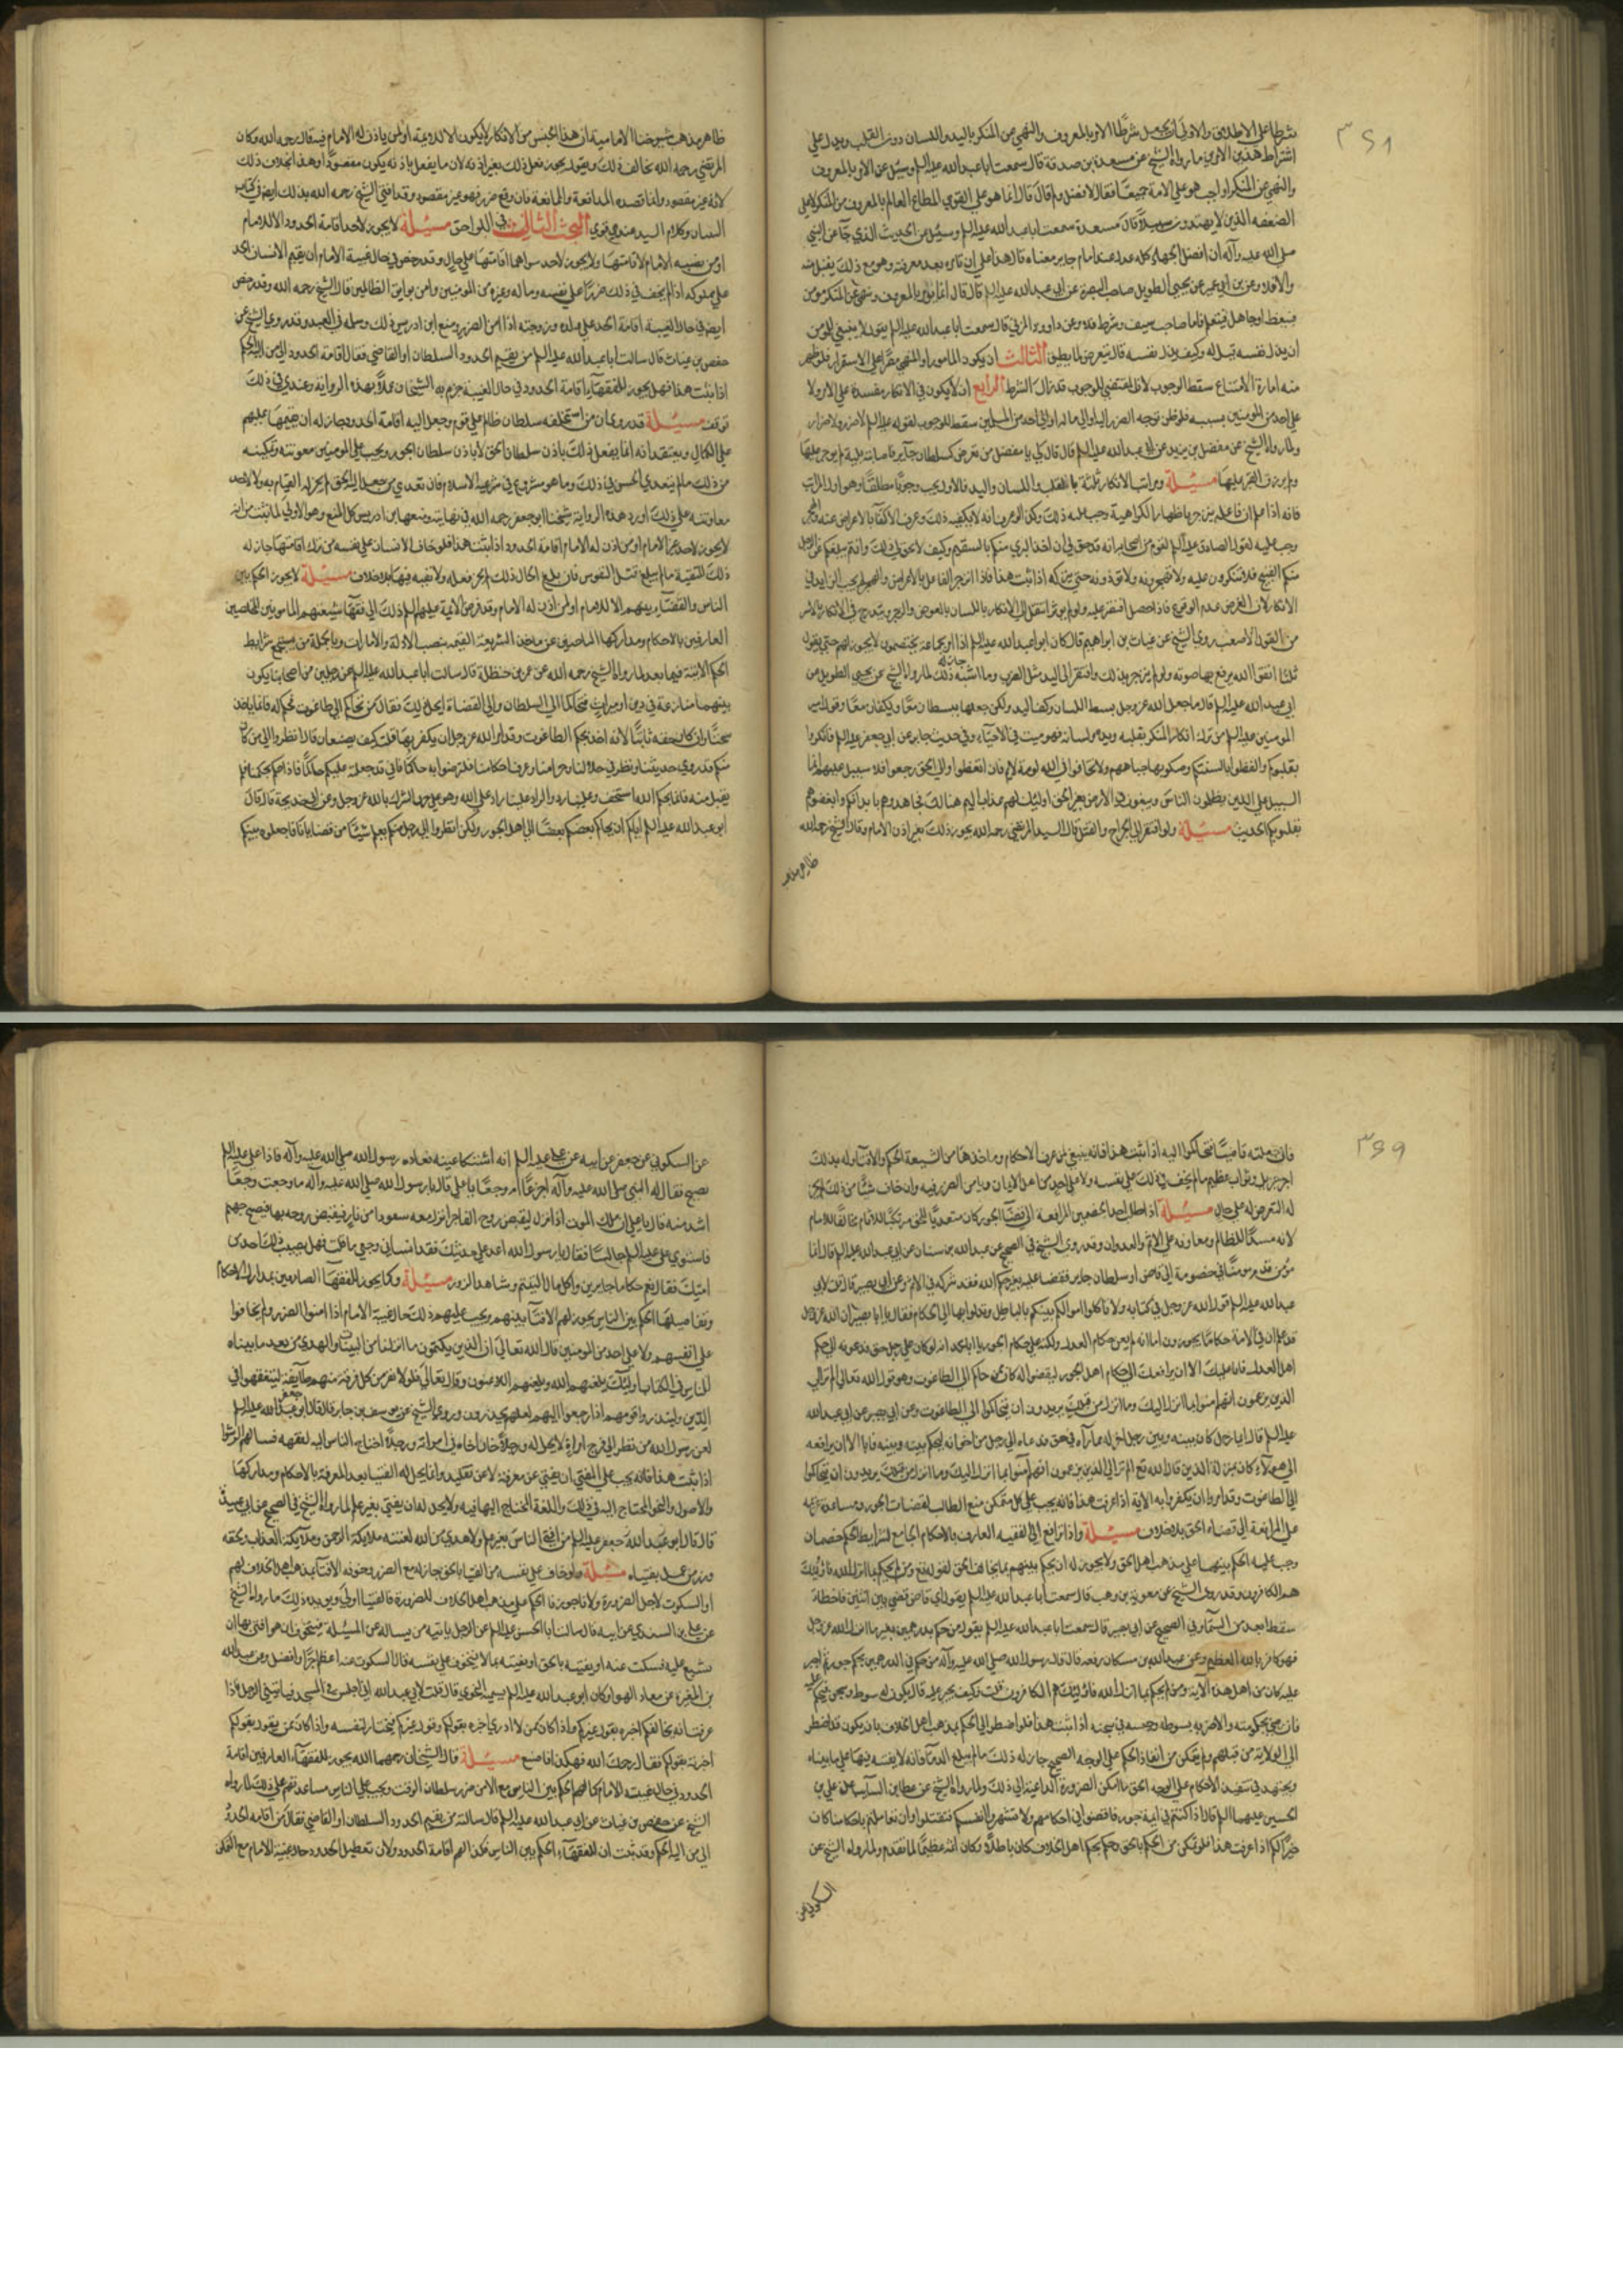 ٣٦٨
شرطا على الاطلاق والاولى ان يجعل شرطا الامر بالمعروف والنهي عن المنكر باليد واللسان دون القلب ويدل على
اشتراط هذين الامرين ما رواه الشيخ عن مسعدة بن صدقة قال سمعت ابا عبد الله عليه السلم وسئل عن الامر بالمعروف
والنهي عن المنكر اواجب هو على الامة جميعا فقال لا فقيل ولم قال قال انما هو على القوي المطاع العالم بالمعروف من المنكر لا على
الضعفه الذين لا يهتدون سبيلا قال مسعدة سمعت ابا عبد الله عليه السلم وسئل عن الحديث الذي جآء عن النبي
صلى الله عليه وآله ان افضل الجهاد كلمة عدل عند امام جاير ما معناه قال هذا على ان يامره بعد معرفته وهو مع ذلك يقبل منه
والا فلا وعن ابن ابي عمير عن يحيى الطويل صاحب البصرة عن ابي عبد الله عليه السلم قال قال انما يؤمر بالمعروف وينهى عن المنكر مؤمن
فيتعظ او جاهل فيتعلم فاما صاحب سيف وسوط فلا وعن داود الرقي قال سمعت ابا عبد الله عليه السلم يقول لا ينبغي للمؤمن
ان يذل نفسه قيل له وكيف يذل نفسه قال يتعرض لما لا يطيق الثالث ان يكون المأمور او المنهي مصرا على الاستمرار فلو ظهر
منه امارة الامتناع سقط الوجوب لان المقتضي للوجوب قد زال الشرط الرابع ان لا يكون في الانكار مفسدة على الامر ولا
على احد من المؤمنين بسببه فلو ظن توجه الضرر اليه او الى ماله او الى احد من المسلمين سقط الوجوب لقوله عليه السلم لا ضرر ولا اضرار
ولما رواه الشيخ عن مفضل بن يزيد عن ابي عبد الله عليه السلم قال قال لي يا مفضل من تعرض لسلطان جآير فاصابته بلية لم يوجر عليها
ولم يرزق الصبر عليها مسئلة ومراتب الانكار ثلثة بالقلب واللسان واليد فالاول يجب وجوبا مطلقا وهو اول المراتب
فانه اذا علم ان فاعله ينزجر باظهار الكراهية وجب عليه ذلك وكذا لو عرف انه لا يكفيه ذلك وعرف الاكتفآء بالاعراض عنه والهجر
وجب عليه لقول الصادق عليه السلم لقوم من اصحابه انه قد حق لي ان اخذ البري منكم بالسقيم وكيف لا يحق لي ذلك وانتم يبلغكم عن الرجل
منكم القبيح فلا تنكرون عليه ولا تهجرونه ولا تؤذونه حتى يتركه اذا ثبت هذا فاذا انزجر الفاعل بالاعراض والهجر لم يجب الزايد في
الانكار لان الغرض عدم الوقوع فاذا حصل اقتصر عليه ولو لم يؤثر انتقل الى الانكار باللسان بالوعظ والزجر ويتدرج في الانكار بالايسر
من القول الاصعب روى الشيخ عن غياث بن ابراهيم قال كان ابو عبد الله عليه السلم اذا مر بجماعة يختصمون لا يجوزهم حتى يقول
ثلثا اتقوا الله يرفع بها صوته ولو لم ينزجر بذلك وافتقر الى اليد مثل الضرب وما اشبه ذلك جاز له لما رواه الشيخ عن يحيى الطويل عن
ابي عبد الله عليه السلم قال ما جعل الله عز وجل بسط اللسان وكف اليد ولكن جعلهما يبسطان معا ويكفان معا وقول امير
المؤمنين عليه السلم من ترك انكار المنكر بقلبه ويده ولسانه فهو ميت في الاحيآء وفي حديث جابر عن ابي جعفر عليه السلم فانكروا
بقلوبكم والفظوا بالسنتكم وصكوا بها جباههم ولا تخافوا في الله لومة لايم فان اتعظوا والى الحق رجعوا فلا سبيل عليهم انما
السبيل على الذين يظلمون الناس ويبغون في الارض بغير الحق اولئك لهم عذاب اليم هنالك فجاهدوهم بابدانكم وابغضوهم
بقلوبكم الحديث مسئلة ولو افتقر الى الجراح والقتل قال السيد المرتضى رحمه الله يجوز ذلك بغير اذن الامام وقال الشيخ رحمه الله
ظاهر مذهب
ظاهر مذهب شيوخنا الامامية ان هذا الجنس من الانكار لا يكون الا للائمة او لمن ياذن له الامام فيه قال رحمه الله وكان
المرتضى رحمه الله يخالف ذلك ويقول يجوز فعل ذلك بغير اذنه لان ما يفعل باذنه يكون مقصودا وهذا بخلاف ذلك
لانه غير مقصود وانما قصده المدافعة والممانعة فان وقع ضرر فهو غير مقصود وقد افتى الشيخ رحمه الله بذلك ايضا في كتاب
التبيان وكلام السيد عندي قوي البحث الثالث في اللواحق مسئلة لا يجوز لاحد اقامة الحدود الا للامام
او من نصبه الامام لاقامتها ولا يجوز لاحد سواهما اقامتها على حال وقد رخص في حال غيبة الامام ان يقيم الانسان الحد
على مملوكه اذا لم يخف في ذلك ضررا على نفسه وماله وغيره من المؤمنين وامن بوايق الظالمين قال الشيخ رحمه الله وقد رخص
ايضا في حال الغيبة اقامة الحد على ولده وزوجته اذا امن الضرر ومنع ابن ادريس ذلك وسلمه في العبد وقد روى الشيخ عن
حفص بن غياث قال سالت ابا عبد الله عليه السلم من يقيم الحدود السلطان او القاضي فقال اقامة الحدود الى من اليه الحكم
اذا ثبت هذا فهل يجوز للفقهآء اقامة الحدود في حال الغيبة جزم به الشيخان عملا بهذه الرواية وعندي في ذلك
توقف مسئلة قد روي ان من استخلفه سلطان ظالم على قوم وجعل اليه اقامة الحدود جاز له ان يقيمها عليهم
على الكمال ويعتقد انه انما يفعل ذلك باذن سلطان الحق لا باذن سلطان الجور ويجب على المومنين معونته وتمكينه
من ذلك ما لم يتعدى الحق في ذلك وما هو مشروع في شريعة الاسلام فان تعدى من جعل اليه الحق لم يجز له القيام به ولا لاحد
معاونته على ذلك اورد هذه الرواية شيخنا ابو جعفر رحمه الله في نهايته ومنعها ابن ادريس كل المنع وهو الاولى لما ثبت من انه
لا يجوز لاحد غير الامام او من اذن له الامام اقامة الحدود اذا ثبت هذا فلو خاف الانسان على نفسه من ترك اقامتها جاز له
ذلك للتقية ما لم يبلغ قتل النفوس فان بلغ الحال ذلك لم يجز فعله ولا تقية فيها بلا خلاف مسئلة لا يجوز الحكم بين
الناس والقضآء بينهم الا للامام او لمن اذن له الامام وقد فوض الائمة عليهم السلم ذلك الى فقهآء شيعتهم المأمونين المخلصين
العارفين بالاحكام ومداركها الباحثين عن مآخذ الشريعة القيمين بنصب الادلة والامارات وبالجملة من يستجمع شرايط
الحكم الاتية فيما بعد لما رواه الشيخ رحمه الله عن عمر بن حنظلة قال سالت ابا عبد الله عليه السلم عن رجلين من اصحابنا يكون
بينهما منازعة في دين او ميراث فتحاكما الى السلطان والى القضاة ايحل ذلك فقال من تحاكم الى طاغوت فحكم له فانما ياخذ
سحتا وان كان حقه ثابتا لانه اخذ بحكم الطاغوت وقد امر الله عز وجل ان يكفر بها قلت كيف يصنعان قال انظروا الى من كان
منكم قد روى حديثنا ونظر في حلالنا وحرامنا وعرف احكامنا فلترضوا به حاكما فاني قد جعلته عليكم حاكما فاذا حكم بحكمنا فلم
يقبل منه فانما بحكم الله استخف وعلينا رد والراد علينا راد على الله وهو على حد الشرك بالله عز وجل وعن ابي خديجة قال قال
ابو عبد الله عليه السلم اياكم ان يحاكم بعضكم بعضا الى اهل الجور ولكن انظروا الى رجل منكم يعلم شيئا من قضايانا فاجعلوه بينكم
٣٦٩
فاني جعلته قاضيا فتحاكموا اليه اذا ثبت هذا فانه ينبغي لمن عرف الاحكام ومآخذها من الشيعة الحكم والافتآء وله بذلك
اجر جزيل وثواب عظيم ما لم يخف في ذلك على نفسه ولا على احد من اهل الايمان ويامن الضرر فيه وان خاف شيئا من ذلك لم يجز
له التعرض له على حال مسئلة اذا طلب احد الخصمين المرافعة الى قضاة الجور كان متعديا للحق مرتكبا للاثام مخالفا للامام
لانه مساعد للظالم ومعاونة على الاثم والعدوان وقد روى الشيخ في الصحيح عن عبد الله بن سنان عن ابي عبد الله عليه السلم قال ايما
مؤمن قدم مؤمنا في خصومة الى قاض او سلطان جاير فقضى عليه بغير حكم الله فقد شركه في الاثم وعن ابي بصير قال قلت لابي
عبد الله عليه السلم قول الله عز وجل في كتابه ولا تاكلوا اموالكم بينكم بالباطل وتدلوا بها الى الحكام فقال يا ابا بصير ان الله عز وجل
قد علم ان في الامة حكاما يجورون اما انه لم يعن حكام العدل ولكنه عنى حكام الجور يا ابا محمد انه لو كان على رجل حق فدعوته الى حكم
اهل العدل فابى عليك الا ان يرافعك الى حكام اهل الجور ليقضوا له كان ممن حاكم الى الطاغوت وهو قول الله تعالى الم تر الى
الذين يزعمون انهم امنوا بما انزل اليك وما انزل من قبلك يريدون ان يتحاكموا الى الطاغوت وعن ابي بصير عن ابي عبد الله
عليه السلم قال ايما رجل كان بينه وبين رجل اخ له مماراة في حق فدعاه الى رجل من اخوانه ليحكم بينه وبينه فابى الا ان يرافعه
الى هولآء كان بمنزلة الذين قال الله تع الم تر الى الذين يزعمون انهم آمنوا بما انزل اليك وما انزل من قبلك يريدون ان يتحاكموا
الى الطاغوت وقد امروا ان يكفروا به الاية اذا عرفت هذا فانه يجب على كل متمكن منع الطالب لقضات الجور ومساعدة غريمه
على المرافعة الى قضاء الحق بلا خلاف مسئلة واذا ترافع الى الفقيه العارف بالاحكام الجامع لشرايط الحكم خصمان
وجب عليه الحكم بينهما على مذهب اهل الحق ولا يجوز له ان يحكم بينهم بما يخالف الحق لقوله تع ومن لم يحكم بما انزل الله فاولئك
هم الكافرون وقد روى الشيخ عن معوية بن وهب قال سمعت ابا عبد الله عليه السلم يقول اي قاض قضى بين اثنين فاخطا
سقط ابعد من السمآء وفي الصحيح عن ابي بصير قال سمعت ابا عبد الله عليه السلم يقول من حكم بدرهمين بغير ما انزل الله عز وجل
فهو كافر بالله العظيم وعن عبد الله بن مسكان رفعه قال قال رسول الله صلى الله عليه وآله من حكم في الدرهمين بحكم جور ثم اجبر
عليه كان من اهل هذه الآية ومن لم يحكم بما انزل الله فاولئك هم الكافرون قلت وكيف يجبر عليه قال يكون له سوط وسجن فيحكم عليه
فان رضي بحكومته والا ضربه بسوطه وحبسه في سجنه اذا ثبت هذا فلو اضطر الى الحكم بمذهب اهل الخلاف بان يكون قد اضطر
الى الولاية من قبلهم ولم يتمكن من انفاذ الحكم على الوجه الصحيح جاز له ذلك ما لم يبلغ الدمآء فانه لا تقية فيها على ما بيناه
ويجتهد في تنفيذ الاحكام على الوجه الحق ما امكن الضرورة الداعية الى ذلك ولما رواه الشيخ عن عطا بن السآيب عن علي بن
الحسين عليهما السلم قال اذا كنتم في ايمة جور فاقضوا في احكامهم ولا تشهروا انفسكم فتقتلوا وان تعاملتم باحكامنا كان
خيرا لكم اذا عرفت هذا فلو تمكن من الحكم بالحق وحكم بحكم اهل الخلاف كان باطلا وكان اثمه عظيما لما تقدم ولما رواه الشيخ عن
السكوني عن
عن السكوني عن جعفر عن ابيه عن علي عليه السلم انه اشتكى عينه فعاده رسول الله صلى الله عليه وآله فاذا علي عليه السلم
يصيح فقال له النبي صلى الله عليه وآله اجزعا ام وجعا يا علي قال يا رسول الله صلى الله عليه وآله ما وجعت وجعا
اشد منه قال يا علي ان ملك الموت اذا نزل ليقبض روح الفاجر انزل معه سفودا من نار فيقبض روحه بها فيصيح جهنم
فاستوى علي عليه السلم جالسا فقال يا رسول الله اعد علي حديثك فقد انساني وجعي ما قلت فهل يصيب ذلك احد من
امتك فقال نعم حكاما جايرين واكل مال اليتيم وشاهد الزور مسئلة وكما يجوز للفقهآء العارفين بمدارك الاحكام
وتفاصيلها الحكم بين الناس يجوز لهم الافتآء بينهم ويجب عليهم ذلك حال غيبة الامام اذا امنوا الضرر ولم يخافوا
على انفسهم ولا على احد من المومنين قال الله تعالى ان الذين يكتمون ما انزلنا من البينات والهدى من بعد ما بيناه
للناس في الكتاب اوليك يلعنهم الله ويلعنهم اللاعنون وقال تعالى فلولا نفر من كل فرقة منهم طآيفة ليتفقهوا في
الدين ولينذروا قومهم اذا رجعوا اليهم لعلهم يحذرون وروى الشيخ عن يوسف بن جابر قال قال ابو جعفر عليه السلم
لعن رسول الله من نظر الى فرج امراة لا يحل له ورجلا خان اخاه في امراته ورجلا احتاج الناس اليه لفقهه فسالهم الرشا
اذا ثبت هذا فانه يجب على المفتي ان يفتي عن معرفة لا عن تقليد وانما يحل له الفتيا بعد المعرفة بالاحكام ومداركها
والاصول والنحو المحتاج اليه في ذلك واللغة المحتاج اليها فيه ولا يحل له ان يفتي بغير علم لما رواه الشيخ في الصحيح عن ابي عبيدة
قال قال ابو عبد الله جعفر عليه السلم من افتى الناس بغير علم ولا هدى من الله لعنته ملايكة الرحمن وملآيكة العذاب ولحقه
وزر من عمل بفتياه مسئلة ولو خاف على نفسه من الفتيا بالحق جاز له مع الضرر وخوفه الافتآء بمذاهب اهل الخلاف لهم
او السكوت لاجل الضرورة ولانا جوزنا الحكم على مذهب اهل الخلاف للضرورة فالفتيا اولى ويؤيد ذلك ما رواه الشيخ
عن علي بن السندي عن ابيه قال سالت ابا الحسن عليه السلم عن الرجل ياتيه من يساله عن المسئلة فيتخوف ان هو افتى بها ان
يشنع عليه فسكت عنه او يفتيه بالحق او يفتيه بما لا يتخوف على نفسه قال السكوت عنه اعظم اجرا وافضل وعن عبد الله
بن المغيرة عن معاذ الهرا وكان ابو عبد الله عليه السلم يسميه النحوي قال قلت لابي عبد الله اني اجلس في المسجد فياتيني الرجل فاذا
عرفت انه يخالفكم اخبره بقول غيركم واذا كان ممن لا ادري اخبره بقولكم وقول غيركم فيختار لنفسه واذا كان ممن يقول بقولكم
اخبرته بقولكم فقال رحمك الله فهكذا فاصنع مسئلة قال الشيخان رحمهما الله يجوز للفقهآء العارفين اقامة
الحدود في حال غيبة الامام كما لهم الحكم بين الناس مع الامن من ضرر سلطان الوقت ويجب على الناس مساعدتهم على ذلك لما رواه
الشيخ عن حفص بن غياث عن ابي عبد الله عليه السلم قال سالته من يقيم الحدود السلطان او القاضي فقال من اقامة الحدود
الى من اليه الحكم وقد ثبت ان للفقهآء الحكم بين الناس فكذا لهم اقامة الحدود ولان تعطيل الحدود حال غيبة الامام مع التمكن